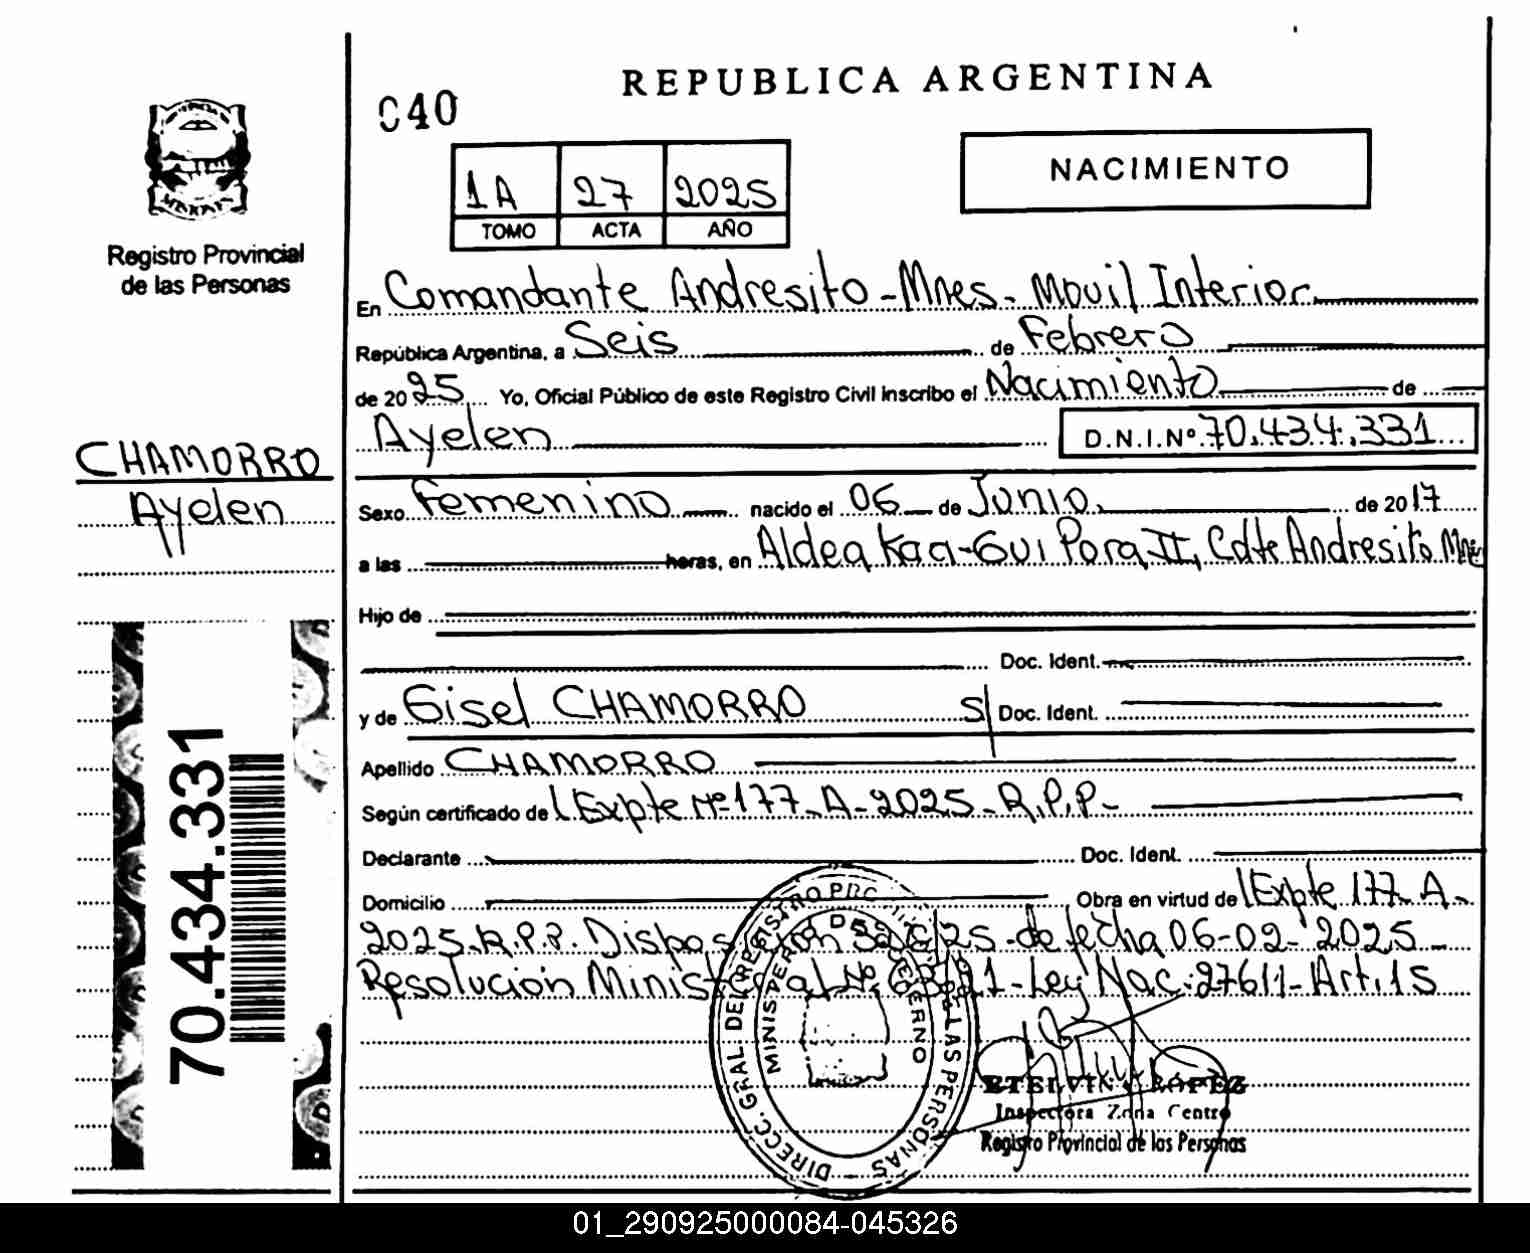 REPUBLICA ARGENTINA
040
NACIMIENTO
1A 27 2025
TOMO ACTA AÑO
Registro Provincial
de las Personas
En Comandante Andresito - Mnes - Movil Interior
República Argentina, a Seis de Febrero
de 2025 Yo, Oficial Público de este Registro Civil inscribo el Nacimiento de
Ayelen D.N.I.Nº 70.434.331
CHAMORRO
Ayelen
Sexo Femenino nacido el 06 de Junio de 2017
a las horas, en Aldea Kaa-Gui Pora II, Cdte Andresito Mnes
Hijo de
Doc. Ident.
y de Gisel CHAMORRO S/ Doc. Ident.
Apellido CHAMORRO
Según certificado de Expte Nº 177-A-2025-R.P.P-
Declarante Doc. Ident.
Domicilio Obra en virtud de Expte 177-A-
2025-R.P.P. Disposición de fecha 06-02-2025-
Resolución Ministerial Nº Ley Nac. 27611-Art. 15
70.434.331
DIRECC. GRAL. DEL REGISTRO DE LAS PERSONAS
MINISTERIO DE GOBIERNO
LÓPEZ
Inspectora Zona Centro
Registro Provincial de las Personas
01_290925000084-045326